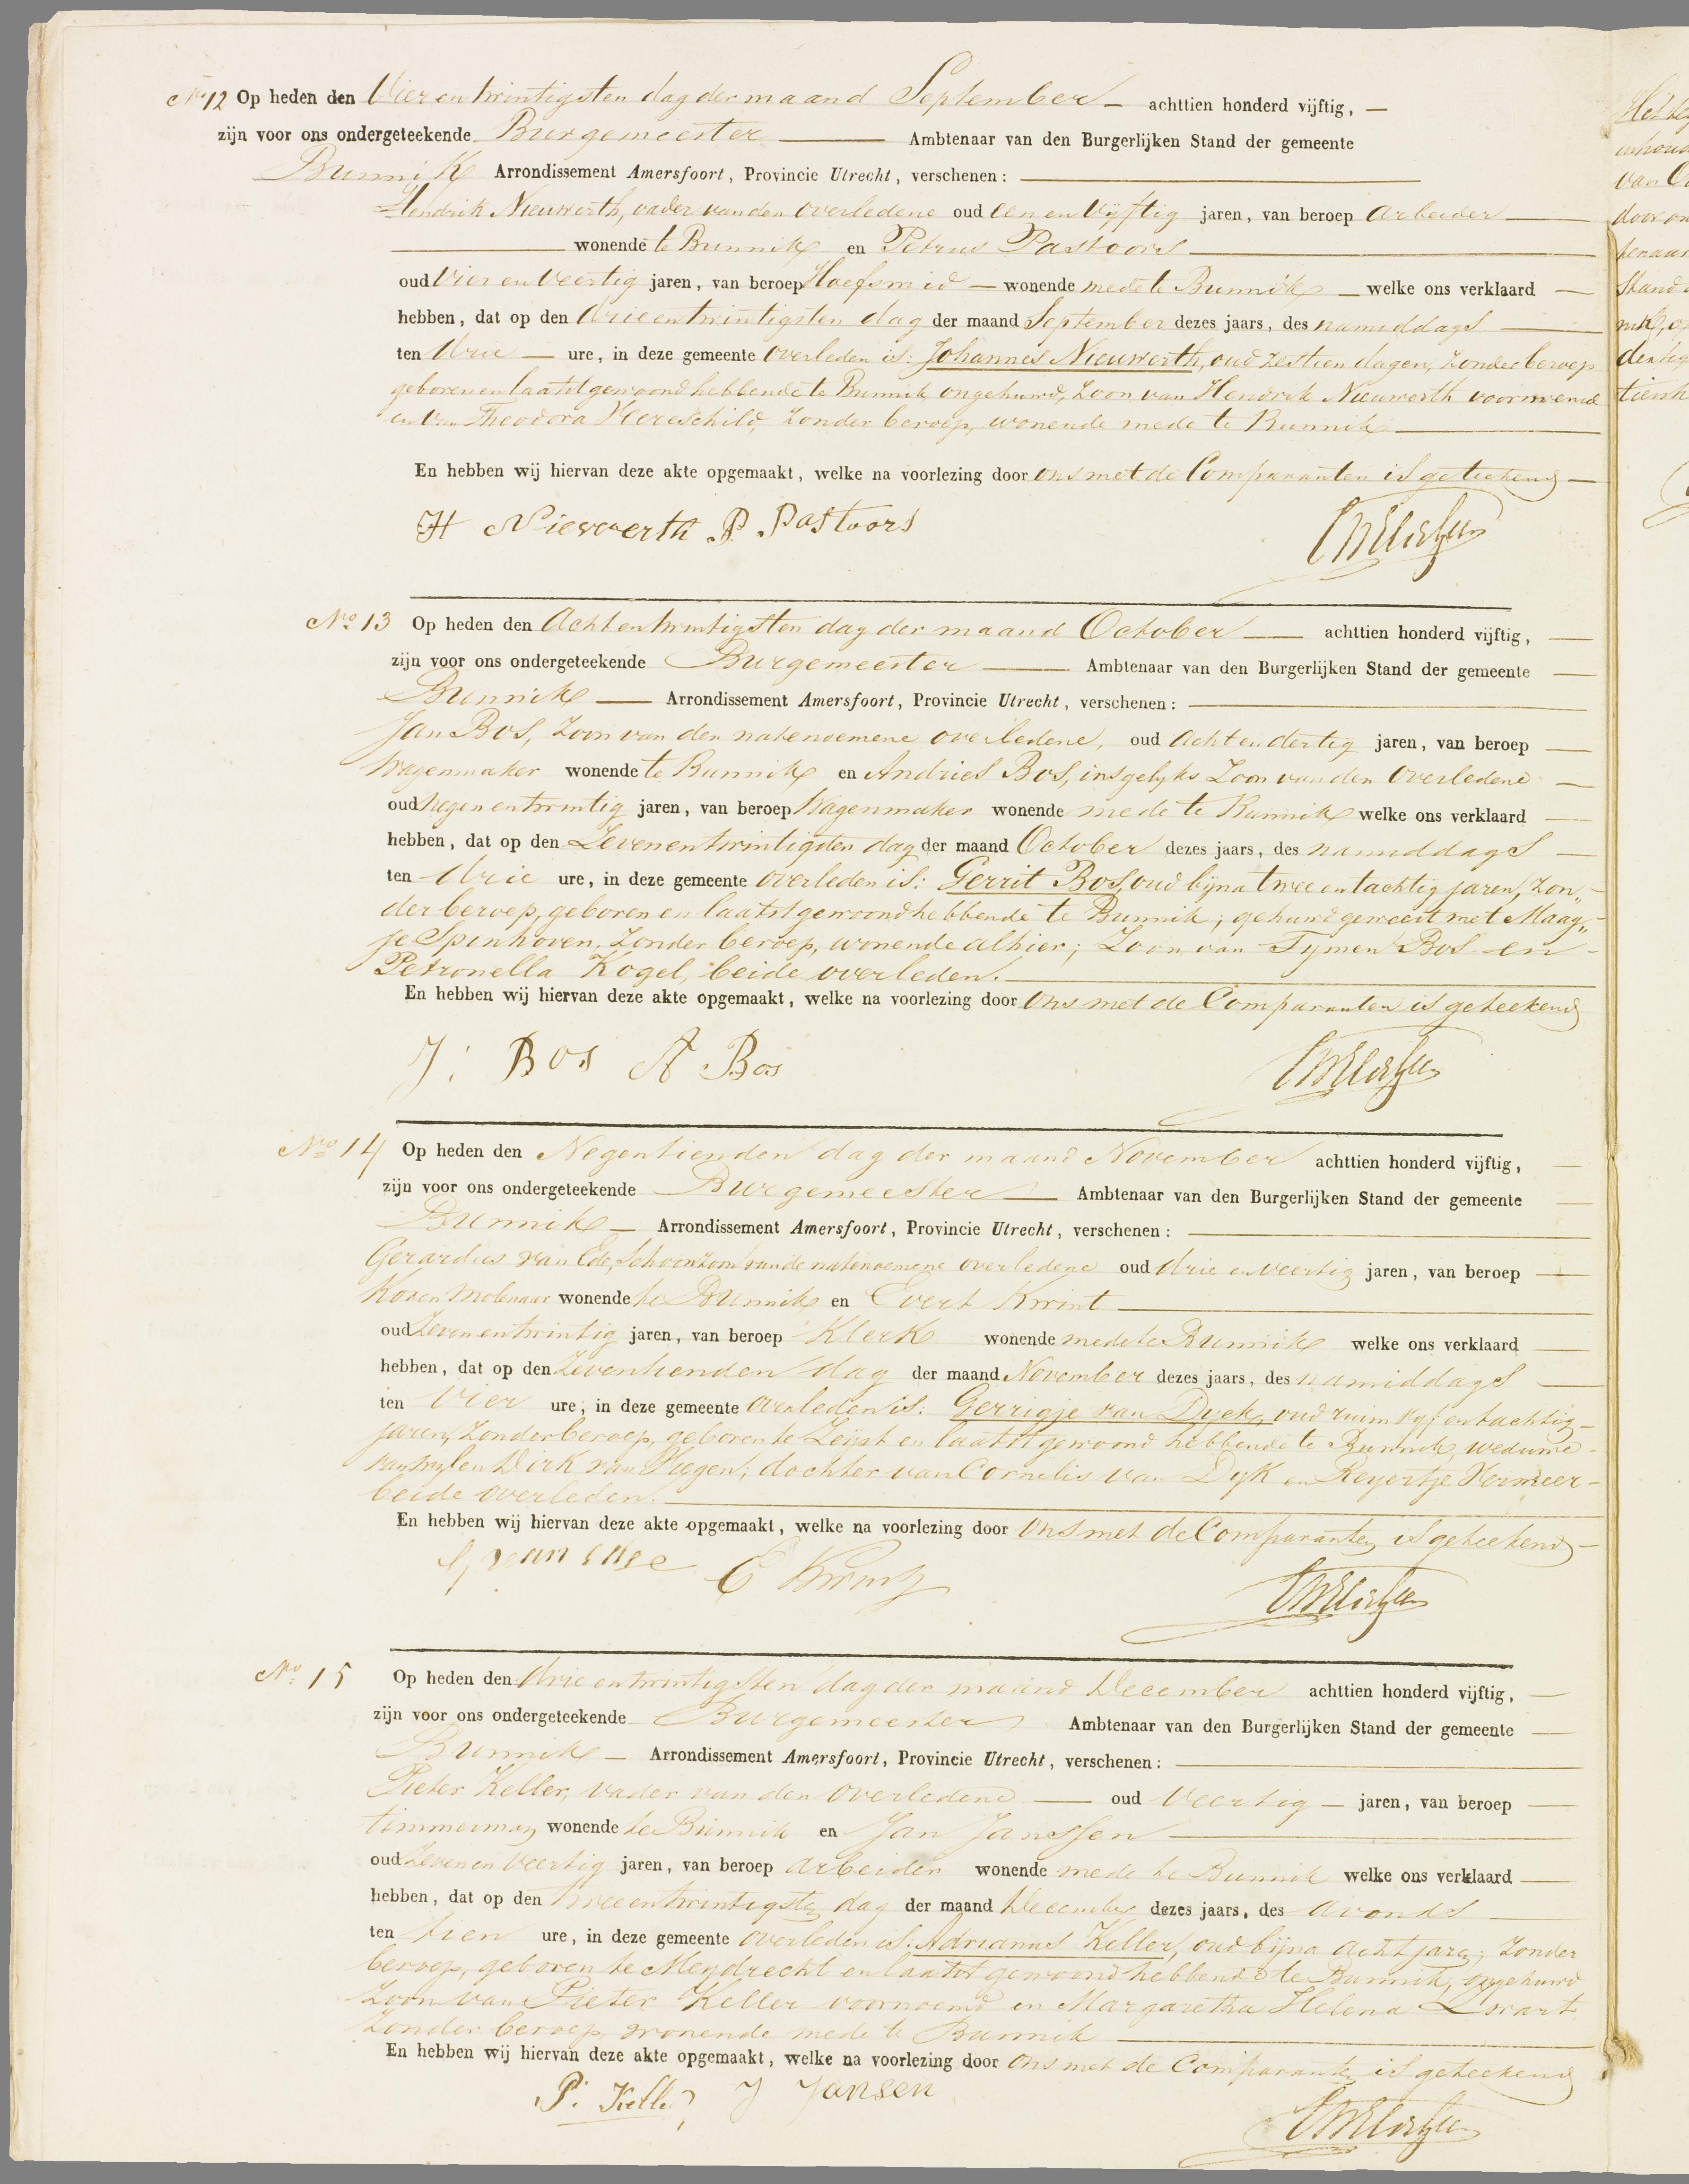 No 12 Op heden den Vier en twintigsten dag der maand September achttien honderd vijftig,
zijn voor ons ondergeteekende Burgemeester Ambtenaar van den Burgerlijken Stand der gemeente
Bunnik Arrondissement Amersfoort, Provincie Utrecht, verschenen:
Hendrik Nieuwerth, vader van den overledene oud een en vijftig jaren, van beroep arbeider
wonende te Bunnik en Petrus Pastoors
oud vier en veertig jaren, van beroep Hoefsmid wonende mede te Bunnik welke ons verklaard
hebben, dat op den drie en twintigsten dag der maand September dezes jaars, des namiddags
ten drie ure, in deze gemeente overleden is: Johannes Nieuwerth, oud zestien dagen, zonder beroep
geboren en laatst gewoond hebbende te Bunnik, ongehuwd, Zoon van Hendrik Nieuwerth voornoemd
en van Theodora Hereschild, zonder beroep, wonende mede te Bunnik
En hebben wij hiervan deze akte opgemaakt, welke na voorlezing door ons met de Comparanten is geteekend
H Nieuwerth P. Pastoors
No 13 Op heden den Acht en twintigsten dag der maand October achttien honderd vijftig,
zijn voor ons ondergeteekende Burgemeester Ambtenaar van den Burgerlijken Stand der gemeente
Bunnik Arrondissement Amersfoort, Provincie Utrecht, verschenen:
Jan Bos, Zoon van den natenoemene overledene, oud acht en dertig jaren, van beroep
Wagenmaker wonende te Bunnik en Andries Bos, insgelyks Zoon van den overledene
oud negen en twintig jaren, van beroep Wagenmaker wonende mede te Bunnik welke ons verklaard
hebben, dat op den Zeven en twintigsten dag der maand October dezes jaars, des namiddags
ten drie ure, in deze gemeente overleden is: Gerrit Bos, oud bijna twee en tachtig jaren, zon„
der beroep, geboren en laatst gewoond hebbende te Bunnik; gehuwd geweest met Maag„
je Spinhoven, zonder beroep, wonende alhier; Zoon van Tymen Bos en
Petronella Kogel, beide overleden.
En hebben wij hiervan deze akte opgemaakt, welke na voorlezing door ons met de Comparanten is geteekend
J: Bos A Bos
No 14 Op heden den Negentienden dag der maand November achttien honderd vijftig,
zijn voor ons ondergeteekende Burgemeester Ambtenaar van den Burgerlijken Stand der gemeente
Bunnik Arrondissement Amersfoort, Provincie Utrecht, verschenen:
Gerardus van Ede, Schoonzoon van de natenoemene overledene oud drie en veertig jaren, van beroep
Koren Molenaar wonende te Bunnik en Evert Kwint
oud Zeven en twintig jaren, van beroep Klerk wonende mede te Bunnik welke ons verklaard
hebben, dat op den Zeventienden dag der maand November dezes jaars, des namiddags
ten vier ure, in deze gemeente overleden is: Gerrigje van Dyck, oud ruim vyf en tachtig
jaren, zonder beroep, geboren te Zeijst en laatst gewoond hebbende te Bunnik, weduwe
van wylen Dirk van Hegen; dochter van Cornelis van Dyk en Reyertje Vermeer
beide overleden.
En hebben wij hiervan deze akte opgemaakt, welke na voorlezing door ons met de Comparanten is geteekend
E Kwint
No 15 Op heden den drie en twintigsten dag der maand December achttien honderd vijftig,
zijn voor ons ondergeteekende Burgemeester Ambtenaar van den Burgerlijken Stand der gemeente
Bunnik Arrondissement Amersfoort, Provincie Utrecht, verschenen:
Pieter Keller, vader van den overledene oud veertig jaren, van beroep
timmerman wonende te Bunnik en Jan Janssen
oud Zeven en veertig jaren, van beroep arbeider wonende mede te Bunnik welke ons verklaard
hebben, dat op den twee en twintigsten dag der maand December dezes jaars, des avonds
ten tien ure, in deze gemeente overleden is: Adrianus Keller, oud bijna acht jaren, zonder
beroep, geboren te Meydrecht en laatst gewoond hebbende te Bunnik, ongehuwd
Zoon van Pieter Keller voornoemd en Margaretha Helena
zonder beroep, wonende mede te Bunnik
En hebben wij hiervan deze akte opgemaakt, welke na voorlezing door ons met de Comparanten is geteekend
P. Keller J Jansen